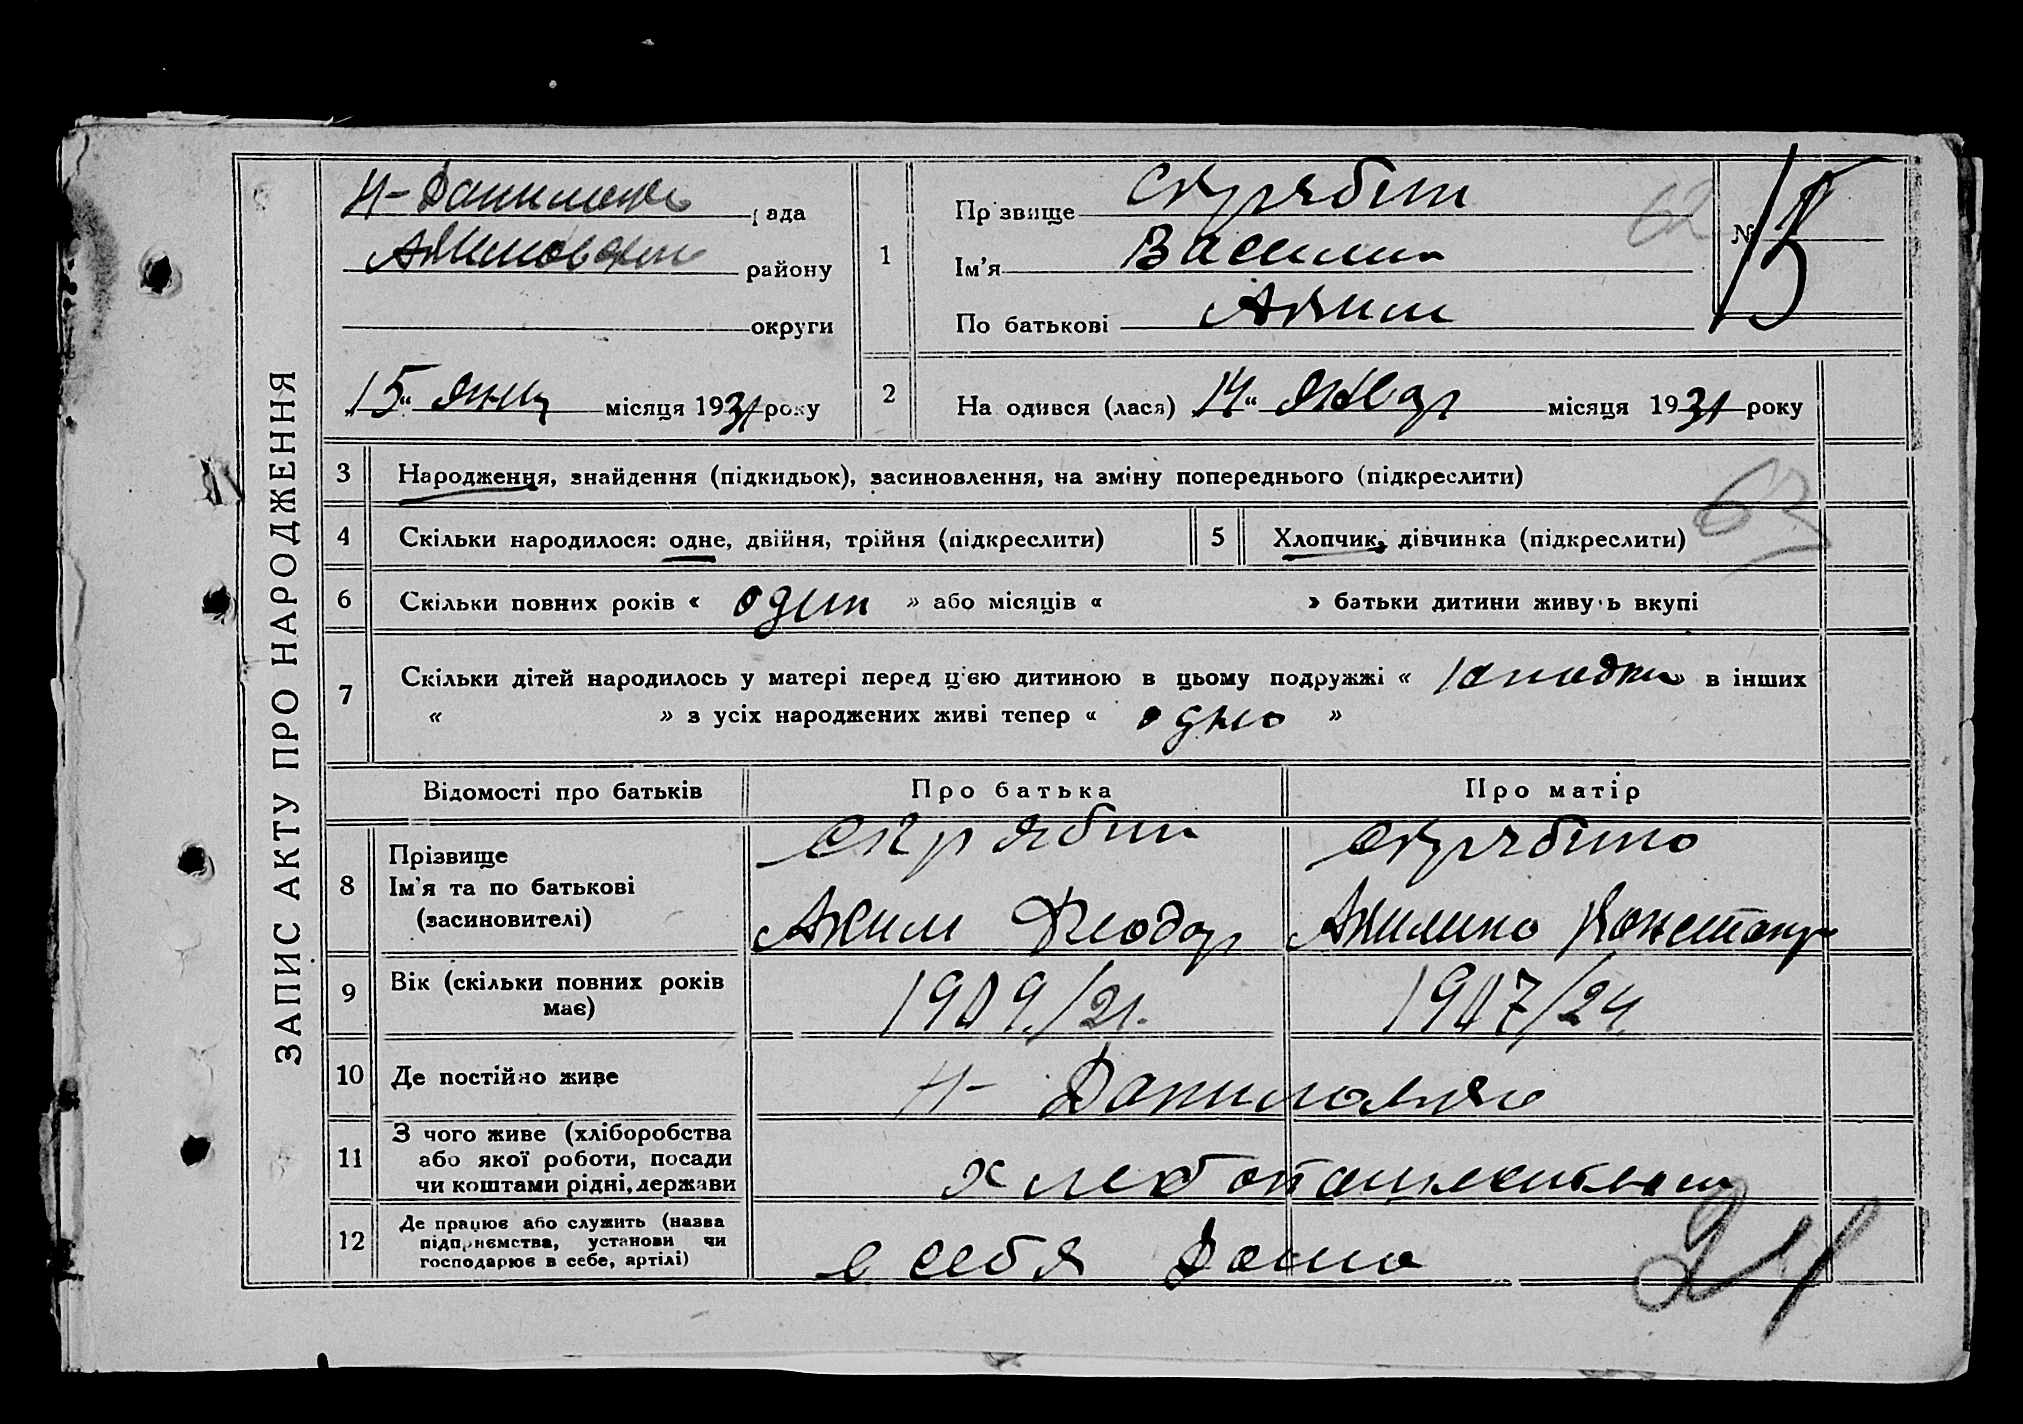 ЗАПИС АКТУ ПРО НАРОДЖЕННЯ
Н- рада
району
округи
15 " янв місяця 1931 року
1
Прізвище Скрябин
Ім'я Василий
По батькові Аким
№ 15
62
2
На одився (лася) 14 " Январ місяця 1931 року
3 Народження, знайдення (підкидьок), засиновлення, на зміну попереднього (підкреслити)
63
4 Скільки народилося: одне, двійня, трійня (підкреслити)
5 Хлопчик, дівчинка (підкреслити)
6 Скільки повних років « один » або місяців « » батьки дитини живуть вкупі
7 Скільки дітей народилось у матері перед цією дитиною в цьому подружжі « » в інших
« » з усіх народжених живі тепер « одно »
Відомості про батьків Про батька Про матір
8 Прізвище
Ім'я та по батькові
(засиновителі)
Скрябин Скрябина
Аким Феодор Акилина Констант
9 Вік (скільки повних років
має)
1909./21. 1907/24.
10 Де постійно живе Н-
11 З чого живе (хліборобства
або якої роботи, посади
чи коштами рідні, держави
12 Де працює або служить (назва
підприємства, установи чи
господарює в себе, артілі)
в себя Дома
24